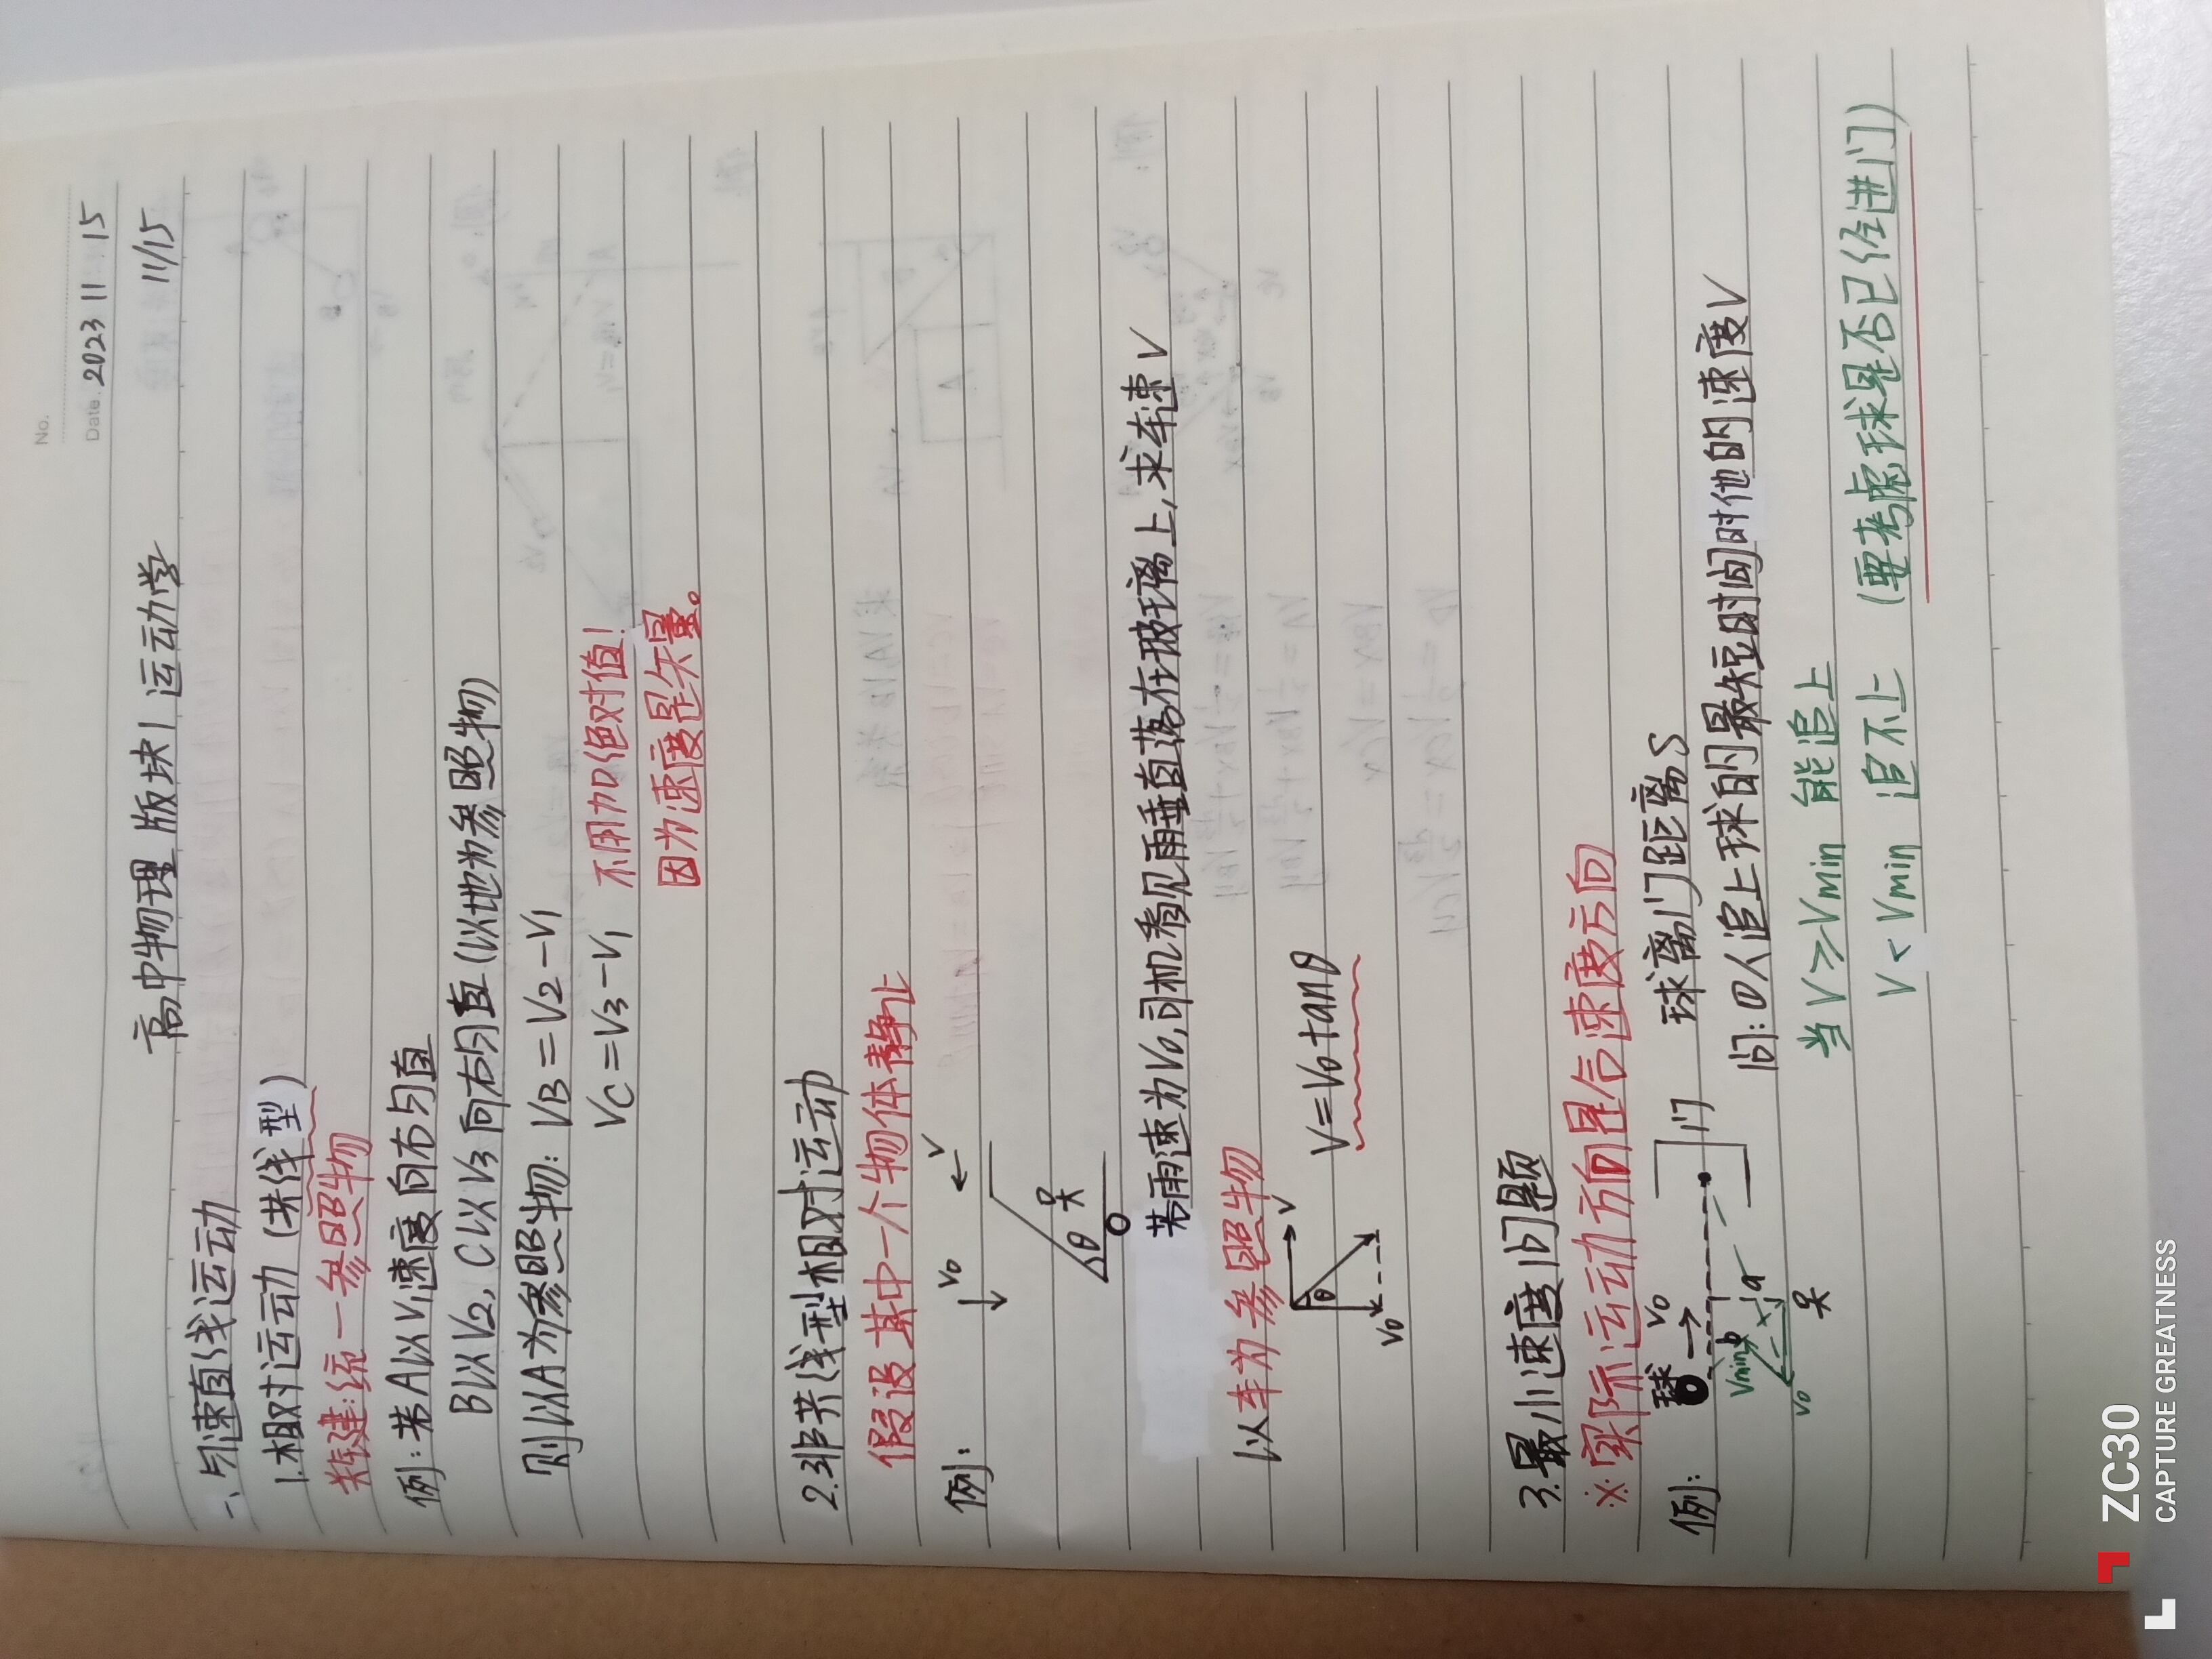 No.
Date. 2023 11 15
高中物理 版块1 运动学 11/15
一、匀速直线运动
1.相对运动 (共线型)
关键:统一参照物
例:若A以V1速度向右匀直
B以V2, C以V3向右匀直(以地为参照物)
则以A为参照物: VB=V2-V1
VC=V3-V1 不用加绝对值!
因为速度是矢量。
2.非共线型相对运动
假设其中一个物体静止
例:
V0
V
θ
若雨速为V0,司机看见雨垂直落在玻璃上,求车速V
以车为参照物
V
θ
V0
V=V0tanθ
3.最小速度问题
※实际运动方向是合速度方向
例:
球 V0
门
球离门距离S
问:①人追上球的最短时间时他的速度V
Vmin b
a
V0
当V≥Vmin 能追上
V<Vmin 追不上 (要考虑球是否已经进门)
ZC30
CAPTURE GREATNESS